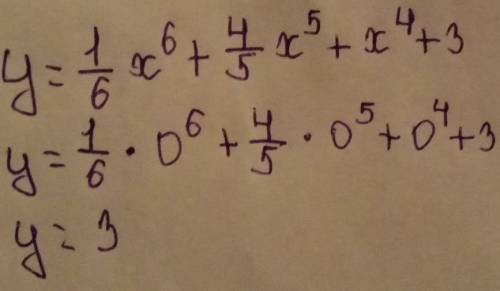 y = 1/6 x⁶ + 4/5 x⁵ + x⁴ + 3
y = 1/6 · 0⁶ + 4/5 · 0⁵ + 0⁴ + 3
y = 3